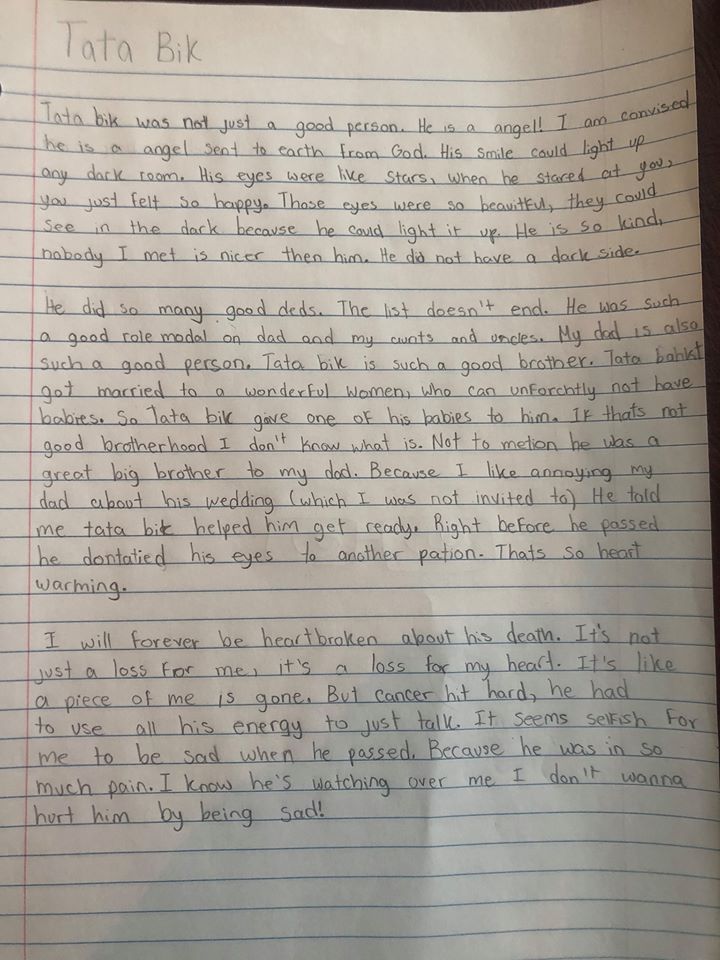 Tata Bik
Tata bik was not just a good person. He is a angel! I am convised
he is a angel sent to earth from God. His smile could light up
any dark room. His eyes were like stars, when he stared at you,
you just felt so happy. Those eyes were so beauitful, they could
see in the dark because he could light it up. He is so kind,
nobody I met is nicer then him. He did not have a dark side.
He did so many good deds. The list doesn't end. He was such
a good role modal on dad and my aunts and uncles. My dad is also
such a good person. Tata bik is such a good brother. Tata bahkt
got married to a wonderful women, who can unforchtly not have
babies. So Tata bik gave one of his babies to him. If thats not
good brotherhood I don't know what is. Not to metion he was a
great big brother to my dad. Because I like annoying my
dad about his wedding (which I was not invited to) He told
me tata bik helped him get ready. Right before he passed
he dontatied his eyes to another pation. Thats so heart
warming.
I will forever be heartbroken about his death. It's not
just a loss for me, it's a loss for my heart. It's like
a piece of me is gone. But cancer hit hard, he had
to use all his energy to just talk. It seems selfish for
me to be sad when he passed. Because he was in so
much pain. I know he's watching over me I don't wanna
hurt him by being sad!